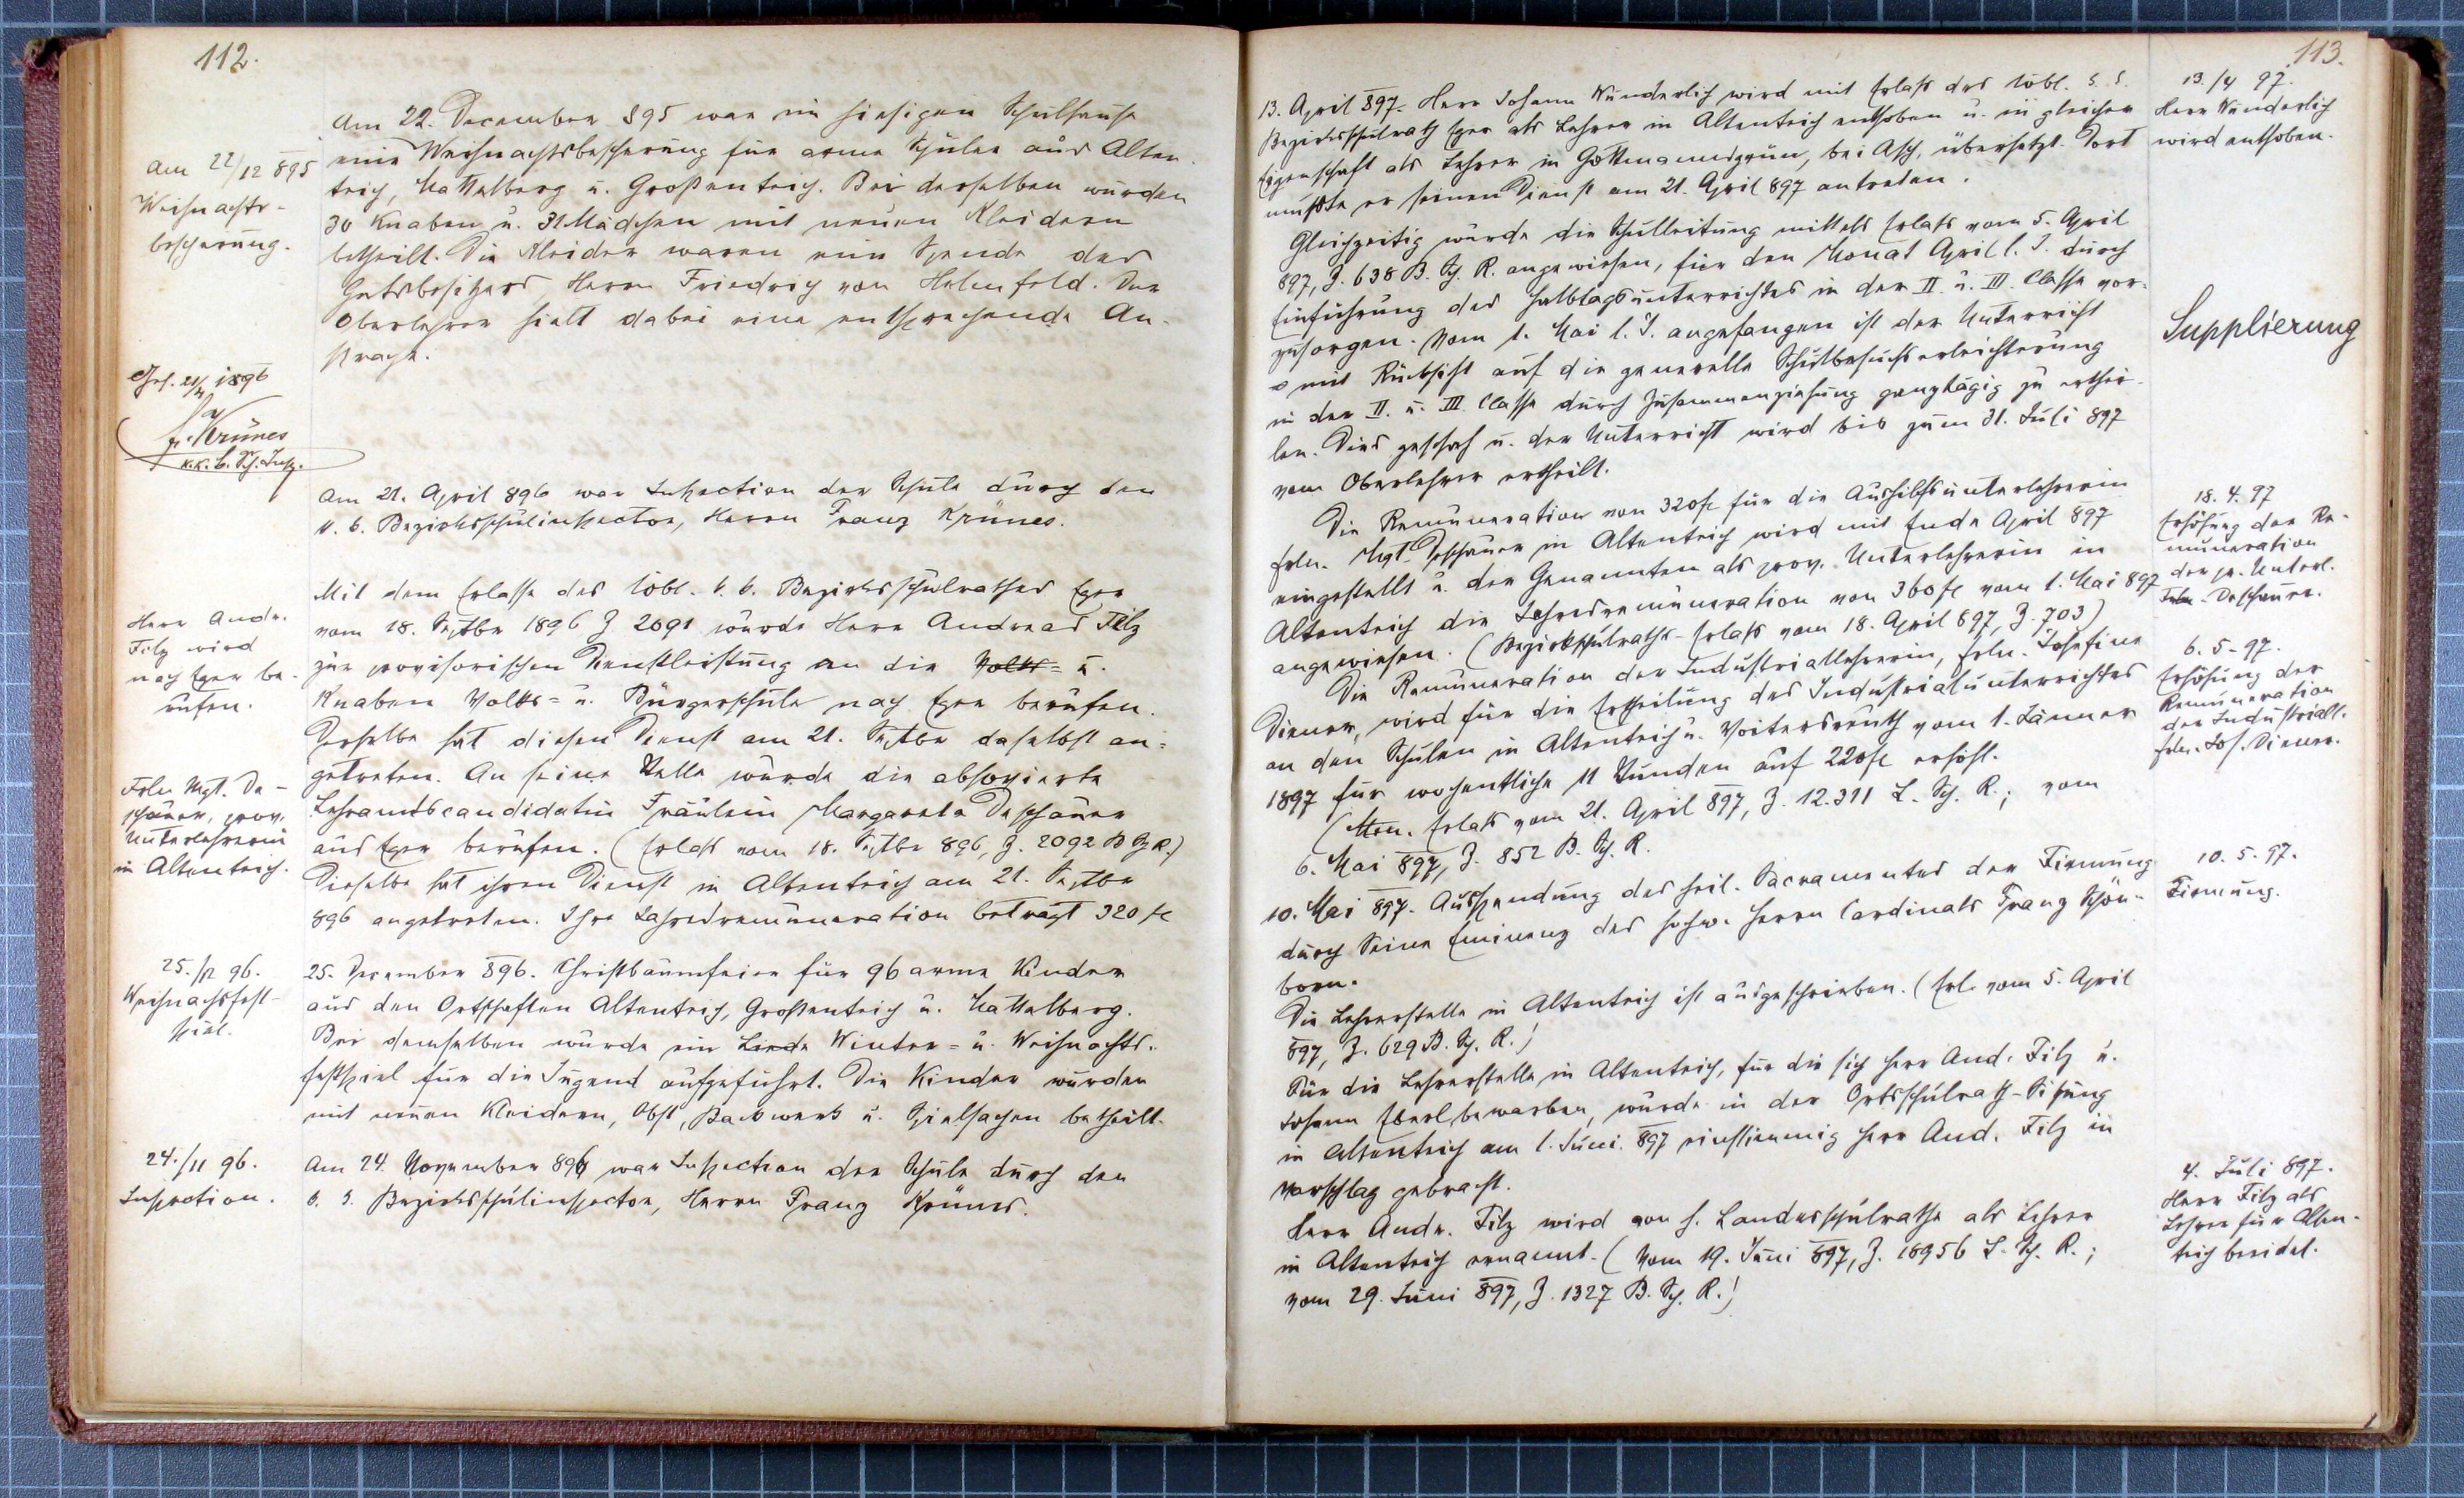 112.
Am 22. December 895 war im hiesigen Schulhause
eine Weihnachtsbescherung für arme Schüler aus Alten-
teich, Nattelberg u. Großenteich. Bei derselben wurden
30 Knaben u. 31 Mädchen mit neuen Kleidern
betheilt. Die Kleider waren eine Spende des
Gutsbesitzers, Herrn Friedrich von Helmfeld. Der
Oberlehrer hielt dabei eine entsprechende An-
sprache.
am 22/12 895
Weihnachts-
bescherung.
Ges. 21/4 1896
Fr. Krünes
k.k. b. Sch. Insp.
Am 21. April 896 war Inspection der Schule durch den
k. k. Bezirksschulinspector, Herrn Franz Krünes.
Mit dem Erlasse des löbl. k. k. Bezirksschulrathes Eger
vom 18. Septbr 1896 Z 2091 wurde Herr Andreas Filz
zur provisorischen Dienstleistung an die Volks- u.
Knaben Volks- u. Bürgerschule nach Eger berufen.
Derselbe hat diesen Dienst am 21. Septbr daselbst an-
getreten. An seine Stelle wurde die absolvierte
Lehramtscandidatin Fräulein Margareta Deschauer
aus Eger berufen. (Erlass vom 18. Septbr 896, Z. 2092 B Sch R.)
Dieselbe hat ihren Dienst in Altenteich am 21. Septbr
896 angetreten. Ihre Jahresremuneration beträgt 320 fl
Herr Andr.
Filz wird
nach Eger be-
rufen.
Frln Mgt. De-
schauer, prov.
Unterlehrerin
in Altenteich.
25. December 896. Christbaumfeier für 96 arme Kinder
aus den Ortschaften Altenteich, Großenteich u. Nattelberg.
Bei demselben wurde ein Winter- u. Weihnachts-
festspiel für die Jugend aufgeführt. Die Kinder wurden
mit neuen Kleidern, Obst, Backwerk u. Spielsachen betheilt.
25./12 96.
Weihnachtsfest-
spiel.
Am 24. November 896 war Inspection der Schule durch den
k. k. Bezirksschulinspector, Herrn Franz Krünes.
24./11 96.
Inspection.
113.
13. April 897. Herr Johann Wunderlich wird mit Erlass des löbl. k. k.
Bezirksschulrath Eger als Lehrer in Altenteich enthoben u. in gleicher
Eigenschaft als Lehrer in Gottmannsgrün, bei Asch, übersetzt. Dort
musste er seinen Dienst am 21. April 897 antreten.
13./4 97.
Herr Wunderlich
wird enthoben.
Gleichzeitig wurde die Schulleitung mittels Erlass vom 5. April
897, Z. 638 B. Sch. R. angewiesen, für den Monat April l. J. durch
Einführung des Halbtagsunterrichtes in der II. u. III. Classe vor-
zusorgen. Vom 1. Mai l. J. angefangen ist der Unterricht
mit Rücksicht auf die generelle Schulbesuchserleichterung
in der II. u. III. Classe durch Zusammenziehung ganztägig zu erthei-
len. Dies geschah u. der Unterricht wird bis zum 31. Juli 897
vom Oberlehrer ertheilt.
Supplierung
Die Remuneration von 320 fl für die Aushilfsunterlehrerin
Frln. Mgt. Deschauer in Altenteich wird mit Ende April 897
eingestellt u. der Genannten als prov. Unterlehrerin in
Altenteich die Jahresremuneration von 360 fl vom 1. Mai 897
angewiesen. (Bezirksschulraths-Erlass vom 18. April 897, Z. 703)
18. 4. 97
Erhöhung der Re-
muneration
der pr. Unterl.
Frln. Deschauer.
Die Remuneration der Industriallehrerin, Frln. Josefine
Diener, wird für die Ertheilung des Industrialunterrichtes
an den Schulen in Altenteich u. Voitersreuth vom 1. Jänner
1897 für wochentliche 11 Stunden auf 220 fl erhöht.
(Min. Erlass vom 21. April 897, Z. 12.311 L. Sch. R.; vom
6. Mai 897, Z. 852 B. Sch. R.
6. 5. 97.
Erhöhung der
Remuneration
der Industriall.
Frln. Jos. Diener.
10. Mai 897. Ausspendung des heil. Sacramentes der Firmung
durch Seine Eminenz des hochw. Herrn Cardinals Franz Schön-
born.
10. 5. 97.
Firmung.
Die Lehrerstelle in Altenteich ist ausgeschrieben. (Erl. vom 5. April
897, Z. 629 B. Sch. R.)
Für die Lehrerstelle in Altenteich, für die sich Herr And. Filz u.
Johann Eberl bewarben, wurde in der Ortsschulrath-Sitzung
in Altenteich am 1. Juni 897 einstimmig Herr And. Filz in
Vorschlag gebracht.
Herr Andr. Filz wird von h. Landesschulrathe als Lehrer
in Altenteich ernannt. (Vom 19. Juni 897, Z. 18956 L. Sch. R.;
vom 29. Juni 897, Z. 1327 B. Sch. R.)
4. Juli 897.
Herr Filz als
Lehrer für Alten-
teich beeidet.